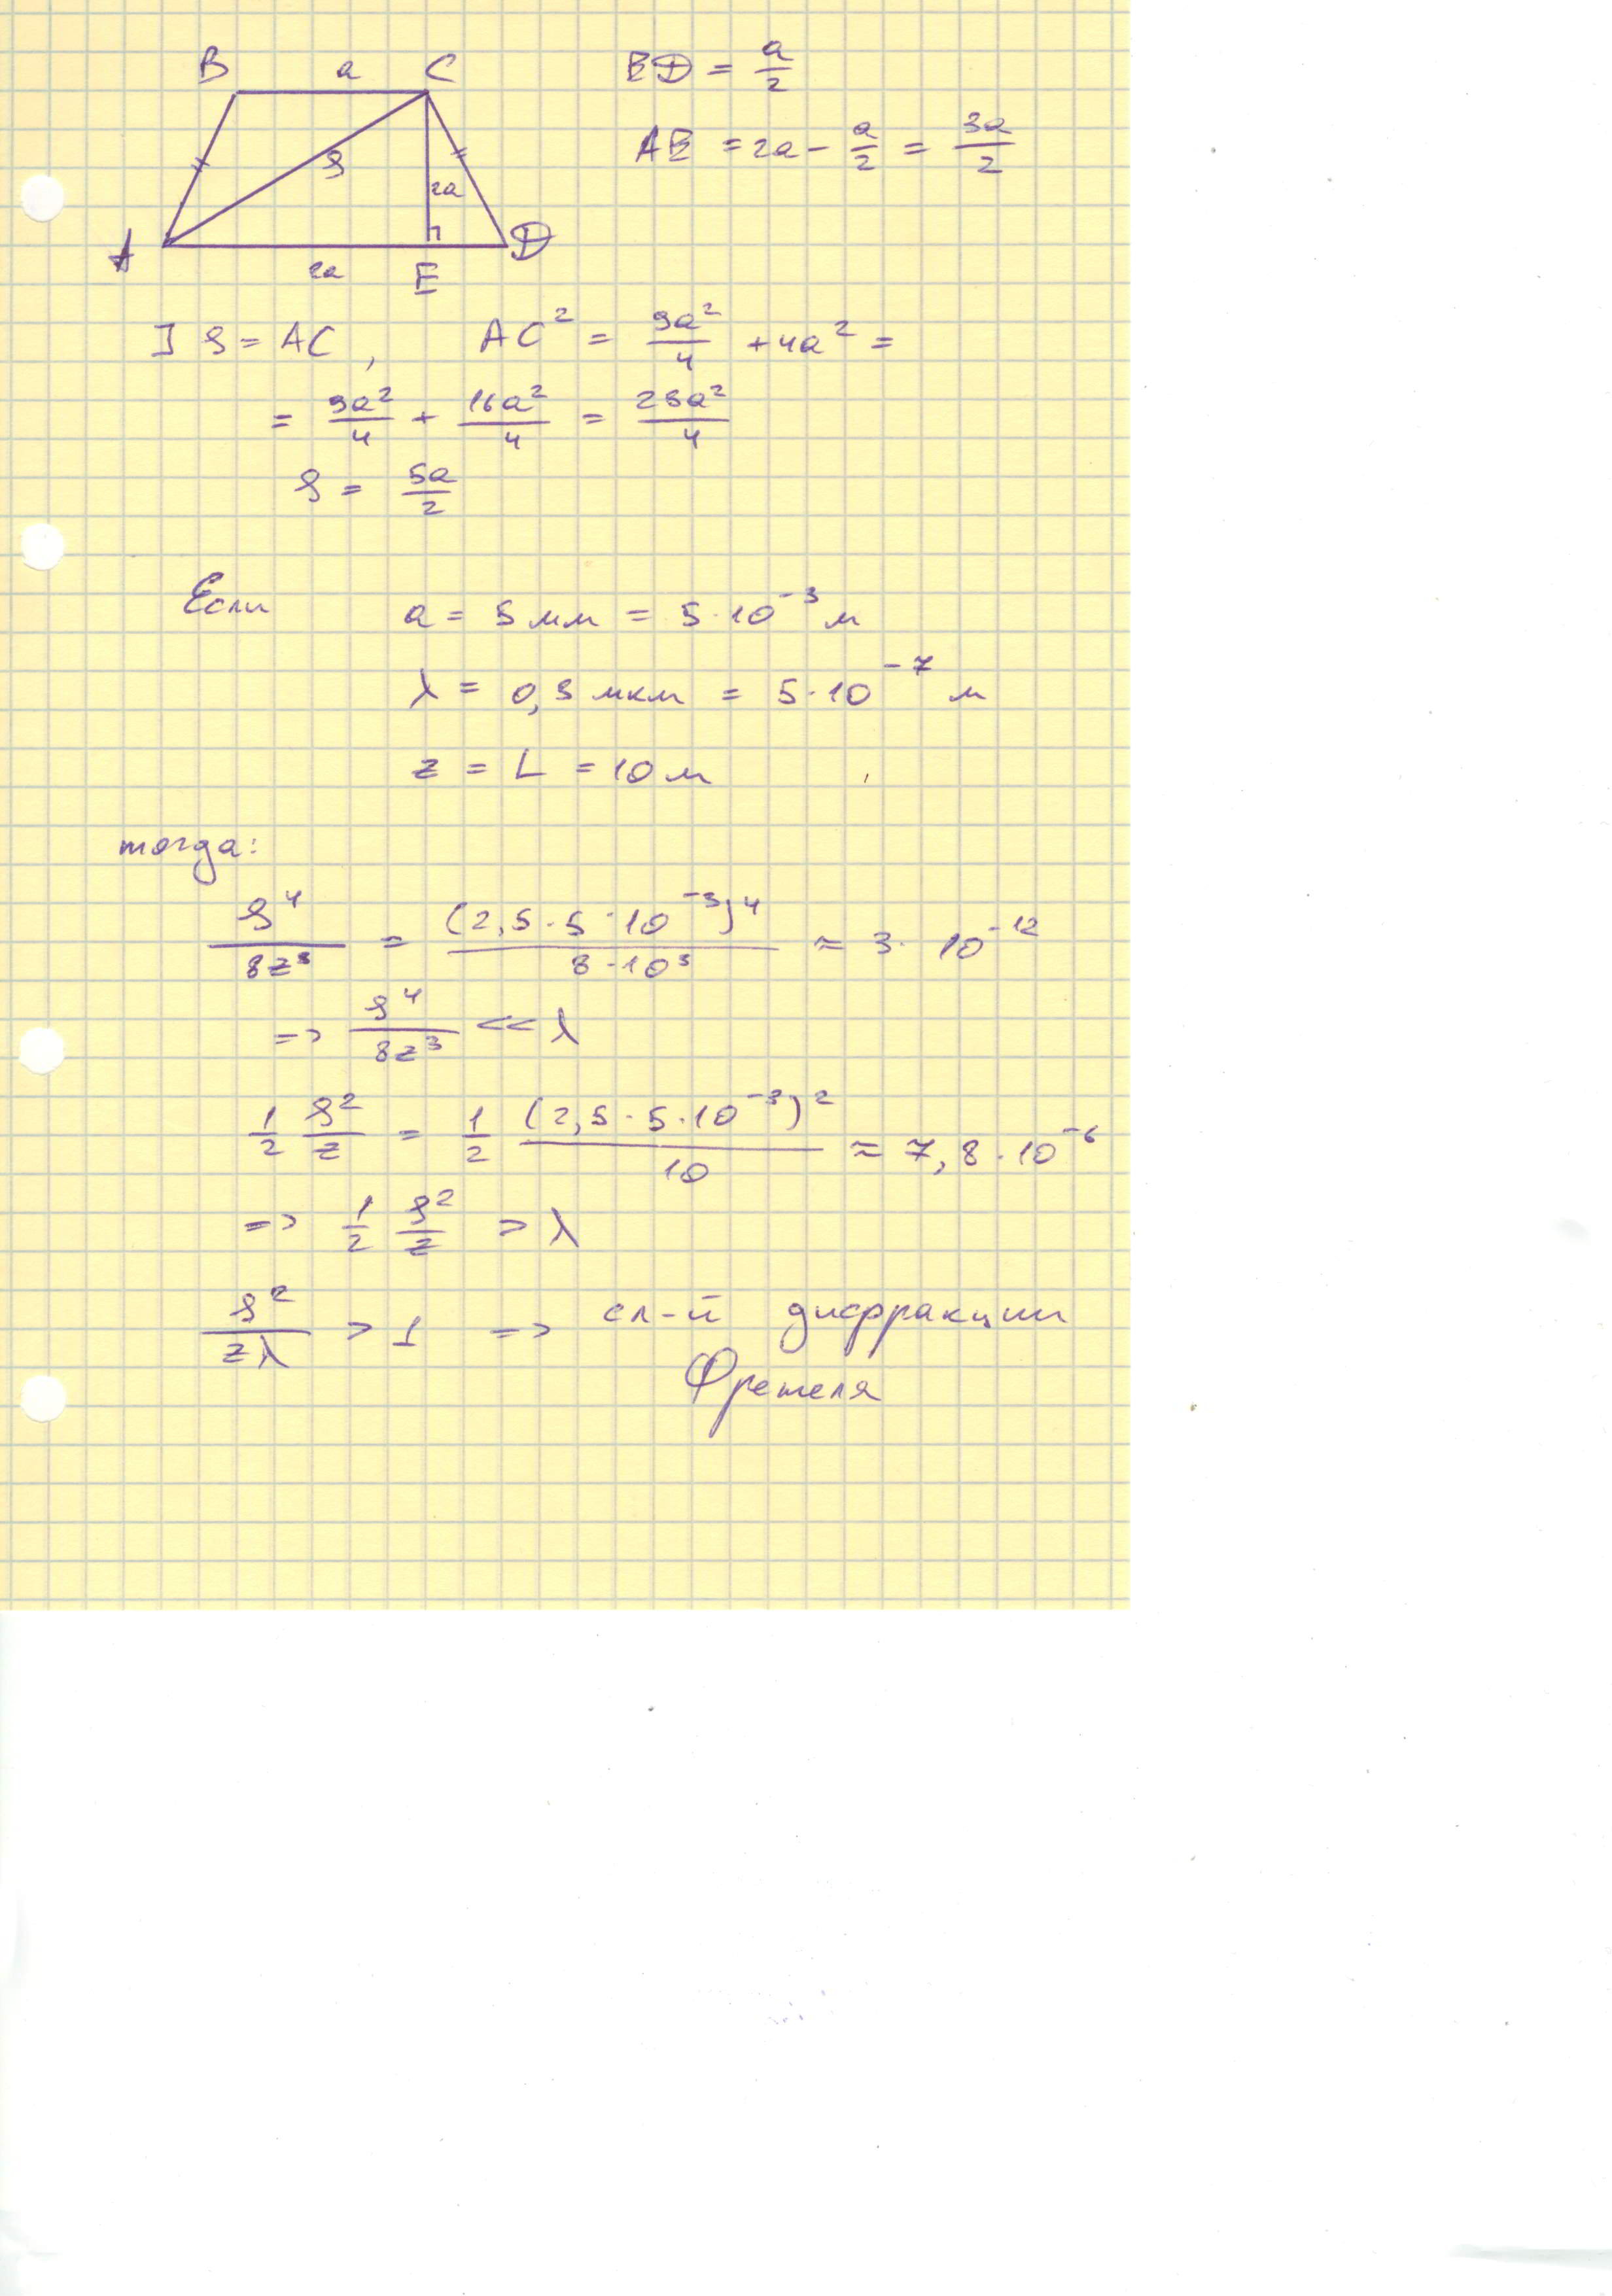 B a C ED = a/2
AE = 2a - a/2 = 3a/2
ρ
2a
A 2a E D
] ρ = AC, AC² = 9a²/4 + 4a² =
= 9a²/4 + 16a²/4 = 25a²/4
ρ = 5a/2
Если a = 5 мм = 5·10⁻³ м
λ = 0,5 мкм = 5·10⁻⁷ м
z = L = 10 м
тогда:
ρ⁴/8z³ = (2,5·5·10⁻³)⁴/8·10³ ≈ 3·10⁻¹²
=> ρ⁴/8z³ << λ
1/2 ρ²/z = 1/2 (2,5·5·10⁻³)²/10 ≈ 7,8·10⁻⁶
=> 1/2 ρ²/z > λ
ρ²/zλ > 1 => сл-й дифракции
Френеля